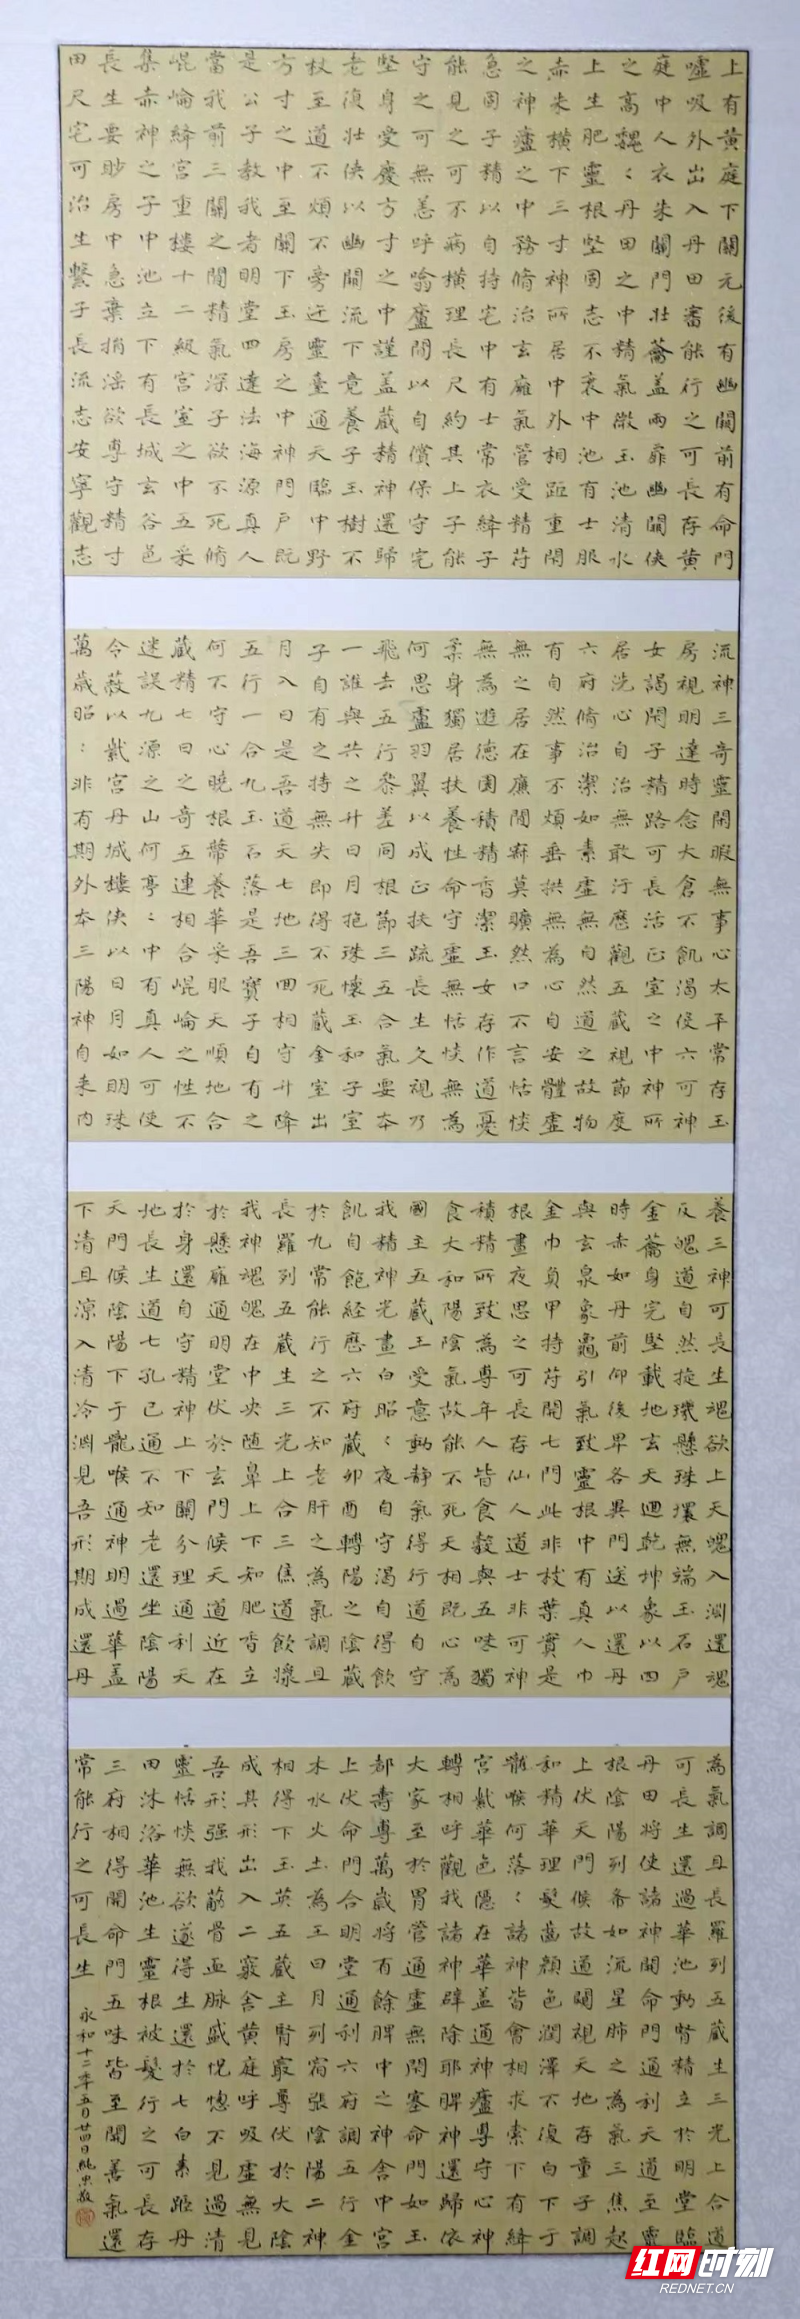 上有黄庭下關元後有幽闕前有命門
噓吸外出入丹田審能行之可長存黄
庭中人衣朱關門壯蘥蓋兩扉幽闕俠
之高魏〻丹田之中精氣微玉池清水
上生肥靈根堅固志不衰中池有士服
赤朱橫下三寸神所居中外相距重閇
之神廬之中務脩治玄廱氣管受精苻
急固子精以自持宅中有士常衣絳子
能見之可不病橫理長尺約其上子能
守之可無恙呼噏廬閒以自償保守完
堅身受慶方寸之中謹蓋藏精神還歸
老復壯俠以幽闕流下竟養子玉樹不
杖至道不煩不旁迕靈臺通天臨中野
方寸之中至關下玉房之中神門戶既
是公子教我者明堂四達法海源真人
當我前三關之閒精氣深子欲不死脩
崐崘絳宮重樓十二級宮室之中五采
集赤神之子中池立下有長城玄谷邑
長生要眇房中急棄捐淫欲專守精寸
田尺宅可治生繫子長流志安寧觀志
流神三奇靈閑暇無事心太平常存玉
房視明達時念大倉不飢渴使六丁神
女謁閇子精路可長活正室之中神所
居洗心自治無敢汙歷觀五藏視節度
六府脩治潔如素虛無自然道之故物
有自然事不煩垂拱無為心自安體虛
無之居在廉閒寂莫曠然口不言恬惔
無為遊德園積精香潔玉女存作道憂
柔身獨居扶養性命守虛無恬惔無為
何思慮羽翼以成正扶疏長生久視乃
飛去五行參差同根節三五合氣要本
一誰與共之升日月抱珠懷玉和子室
子自有之持無失即得不死藏金室出
月入日是吾道天七地三回相守升降
五行一合九玉石落是吾寶子自有之
何不守心曉根蔕養華采服天順地合
藏精七日之奇五連相合崐崘之性不
迷誤九源之山何亭〻中有真人可使
令蔽以紫宮丹城樓俠以日月如明珠
萬歲昭〻非有期外本三陽神自来内
養三神可長生魂欲上天魄入淵還魂
反魄道自然璣懸珠環無端玉石戶
金蘥身完堅載地玄天迴乾坤象以四
時赤如丹前仰後卑各異門送以還丹
與玄泉象龜引氣致靈根中有真人巾
金巾負甲持苻開七門此非枝葉實是
根晝夜思之可長存仙人道士非可神
積精所致為專年人皆食穀與五味獨
食大和陽陰氣故能不死天相既心為
國主五藏王受意動靜氣得行道自守
我精神光晝自昭〻夜自守渴自得飲
飢自飽経歷六府藏卯酉轉陽之陰藏
於九常能行之不知老肝之為氣調且
長羅列五藏生三光上合三焦道飲漿
我神魂魄在中央随鼻上下知肥香立
於懸廱通明堂伏於玄門候天道近在
於身還自守精神上下關分理通利天
地長生道七孔已通不知老還坐陰陽
天門候陰陽下于嚨喉通神明過華蓋
下清且涼入清冷淵見吾形期成還丹
為氣調且長羅列五藏生三光上合道
可長生還過華池動腎精立於明堂臨
丹田將使諸神開命門通利天道至靈
根陰陽列布如流星肺之為氣三焦起
上伏天門候故道闚視天地存童子調
和精華理髮齒顏色潤澤不復白下于
嚨喉何落〻諸神皆會相求索下有絳
宮紫華色隱在華蓋通神廬專守心神
轉相呼觀我諸神辟除耶脾神還歸依
大家至於胃管通虛無閇塞命門如玉
都壽專萬歲將有餘脾中之神舍中宮
上伏命門合明堂通利六府調五行金
木水火土為王日月列宿張陰陽二神
相得下玉英五藏主腎最尊伏於大陰
成其形出入二竅舍黄庭呼吸虛無見
吾形强我筋骨血脉盛怳惚不見過清
靈恬惔無欲遂得生還於七白素距丹
田沐浴華池生靈根被髮行之可長存
三府相得開命門五味皆至開善氣還
常能行之可長生
永和十二年五月廿四日
红网时刻
REDNET.CN